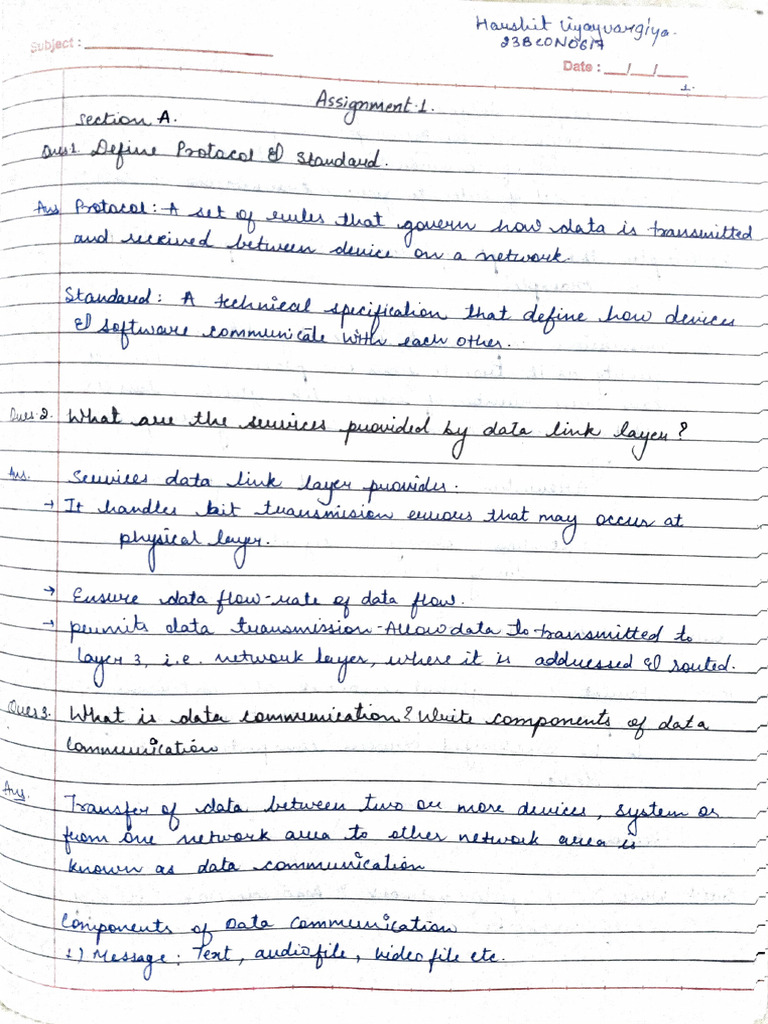 Harshit Vijayvargiya.
23BCON0617
Subject :
Date : __/__/__
1.
Assignment 1.
Section A.
Ques 1. Define Protocol & Standard.
Ans Protocol : A set of rules that govern how data is transmitted
and received between device on a network.
Standard : A technical specification that define how devices
& software communicate with each other.
Ques 2. What are the services provided by data link layer ?
Ans. Services data link layer provides.
→ It handles bit transmision errors that may occur at
physical layer.
→ Ensure data flow - rate of data flow.
→ permits data transmission - Allow data to transmitted to
layer 3, i.e. network layer, where it is addressed & routed.
Ques 3. What is data communication? Write components of data
communication
Ans. Transfer of data between two or more devices, system or
from one network area to other network area is
known as data communication
Components of Data communication
1) Message : Text, audio file, video file etc.